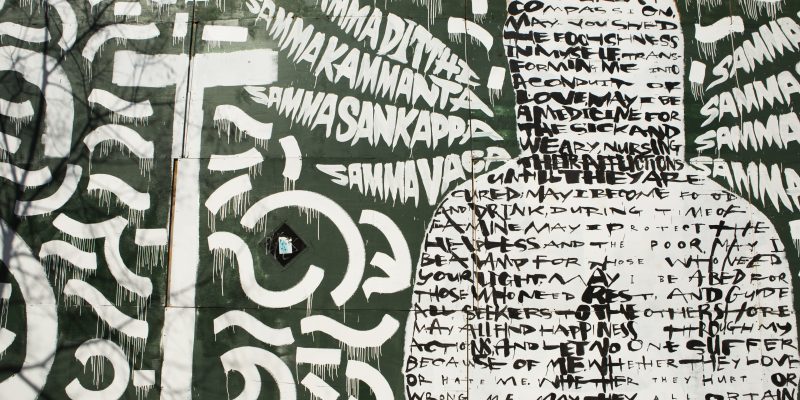 MMADITTHI
SAMMAKAMMANTA
SAMMASANKAPPA
SAMMAVACA
COMPASSION
MAY YOU SHED
THE FOOLISHNESS
IN MYSELF, TRANS-
FORMING ME INTO
A CONDUIT OF
LOVE. MAY I BE
A MEDICINE FOR
THE SICK AND
WEARY, NURSING
THEIR AFFLICTIONS
UNTIL THEY ARE
CURED; MAY I BECOME FOOD
AND DRINK, DURING TIME OF
FAMINE MAY I PROTECT THE
HELPLESS AND THE POOR, MAY I
BE A LAMP FOR THOSE WHO NEED
YOUR LIGHT. MAY I BE A BED FOR
THOSE WHO NEED REST, AND GUIDE
ALL SEEKERS TO THE OTHER SHORE.
MAY ALL FIND HAPPINESS THROUGH MY
ACTIONS, AND LET NO ONE SUFFER
BECAUSE OF ME. WHETHER THEY LOVE
OR HATE ME, WHETHER THEY HURT OR
WRONG ME, MAY THEY ALL OBTAIN
SAMMA
SAMMA
SAMMA
SAMMA